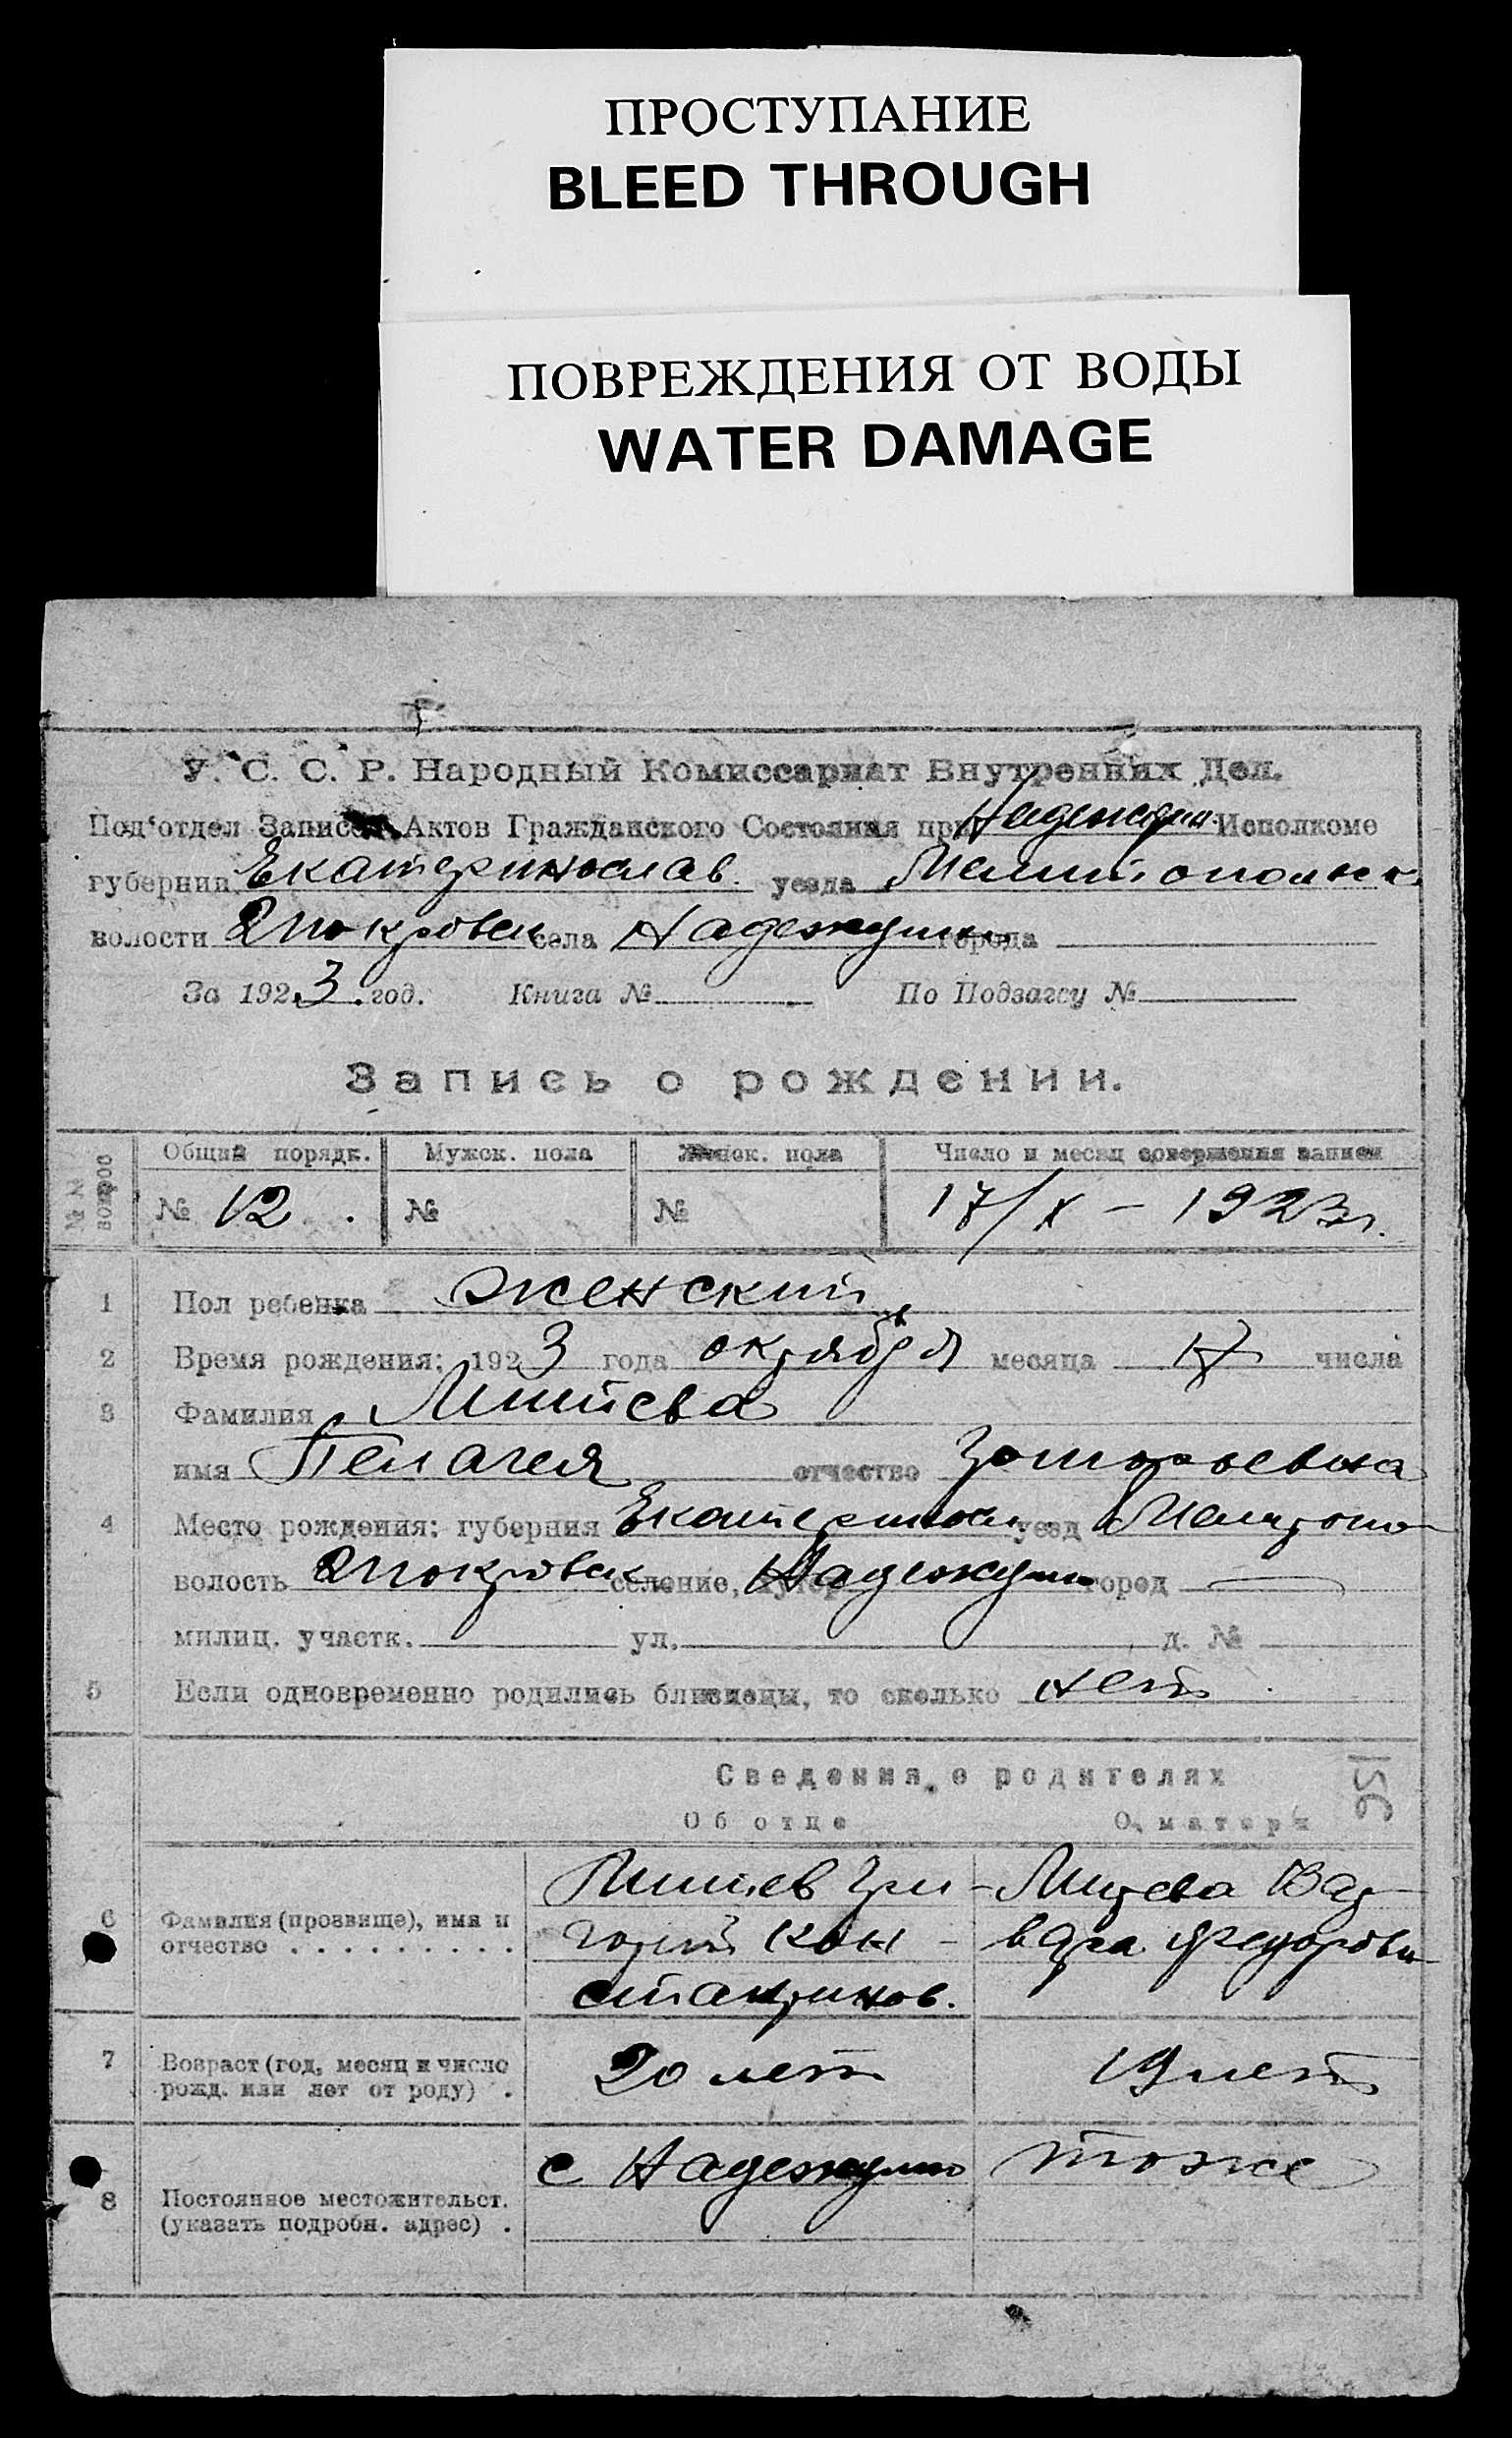 ПРОСТУПАНИЕ
BLEED THROUGH
ПОВРЕЖДЕНИЯ ОТ ВОДЫ
WATER DAMAGE
У. С. С. Р. Народный Комиссариат Внутренних Дел.
Под'отдел Записей Актов Гражданского Состояния при Надеждин. Исполкоме
губернии Екатеринослав. уезда Мелитопольск.
волости 2 Покровск села Надеждино города
За 1923 год. Книга № По Подзагсу №
Запись о рождении.
№ № вопросо Общий порядк. Мужск. пола Женск. пола Число и месяц совершения записи
№ 12. № № 17/X – 1923 г.
1 Пол ребенка женский
2 Время рождения: 1923 года октября месяца 17 числа
3 Фамилия
имя Пелагея отчество
4 Место рождения: губерния Екатериносл. уезд Мелитопо
волость 2 Покровск. селение, хутор Надеждино город —
милиц. участк. ул. д. №
5 Если одновременно родились близнецы, то сколько нет
156
Сведения о родителях
Об отце О матери
6 Фамилия (прозвище), имя и отчество . . . . . . . . .
Гри-
горий Кон-
стантинов.
Вар-
вара Федоровн
7 Возраст (год, месяц и число рожд. или лет от роду) . 20 лет 19 лет
8 Постоянное местожительст. (указать подробн. адрес) . с Надеждино тоже